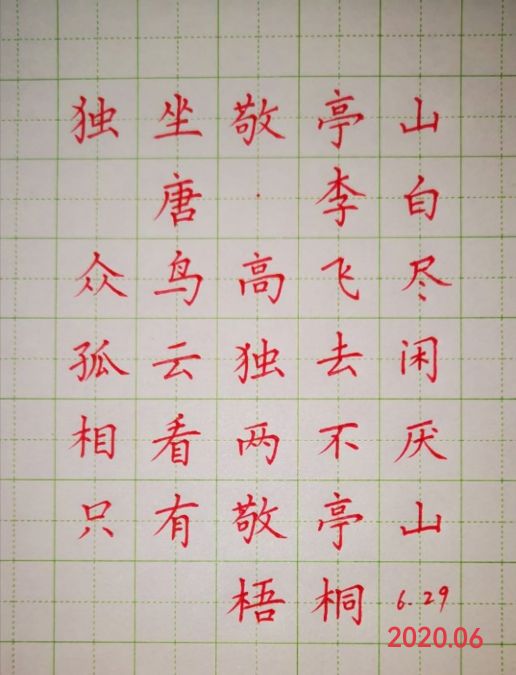 独坐敬亭山
唐·李白
众鸟高飞尽
孤云独去闲
相看两不厌
只有敬亭山
梧桐 6.29
2020.06